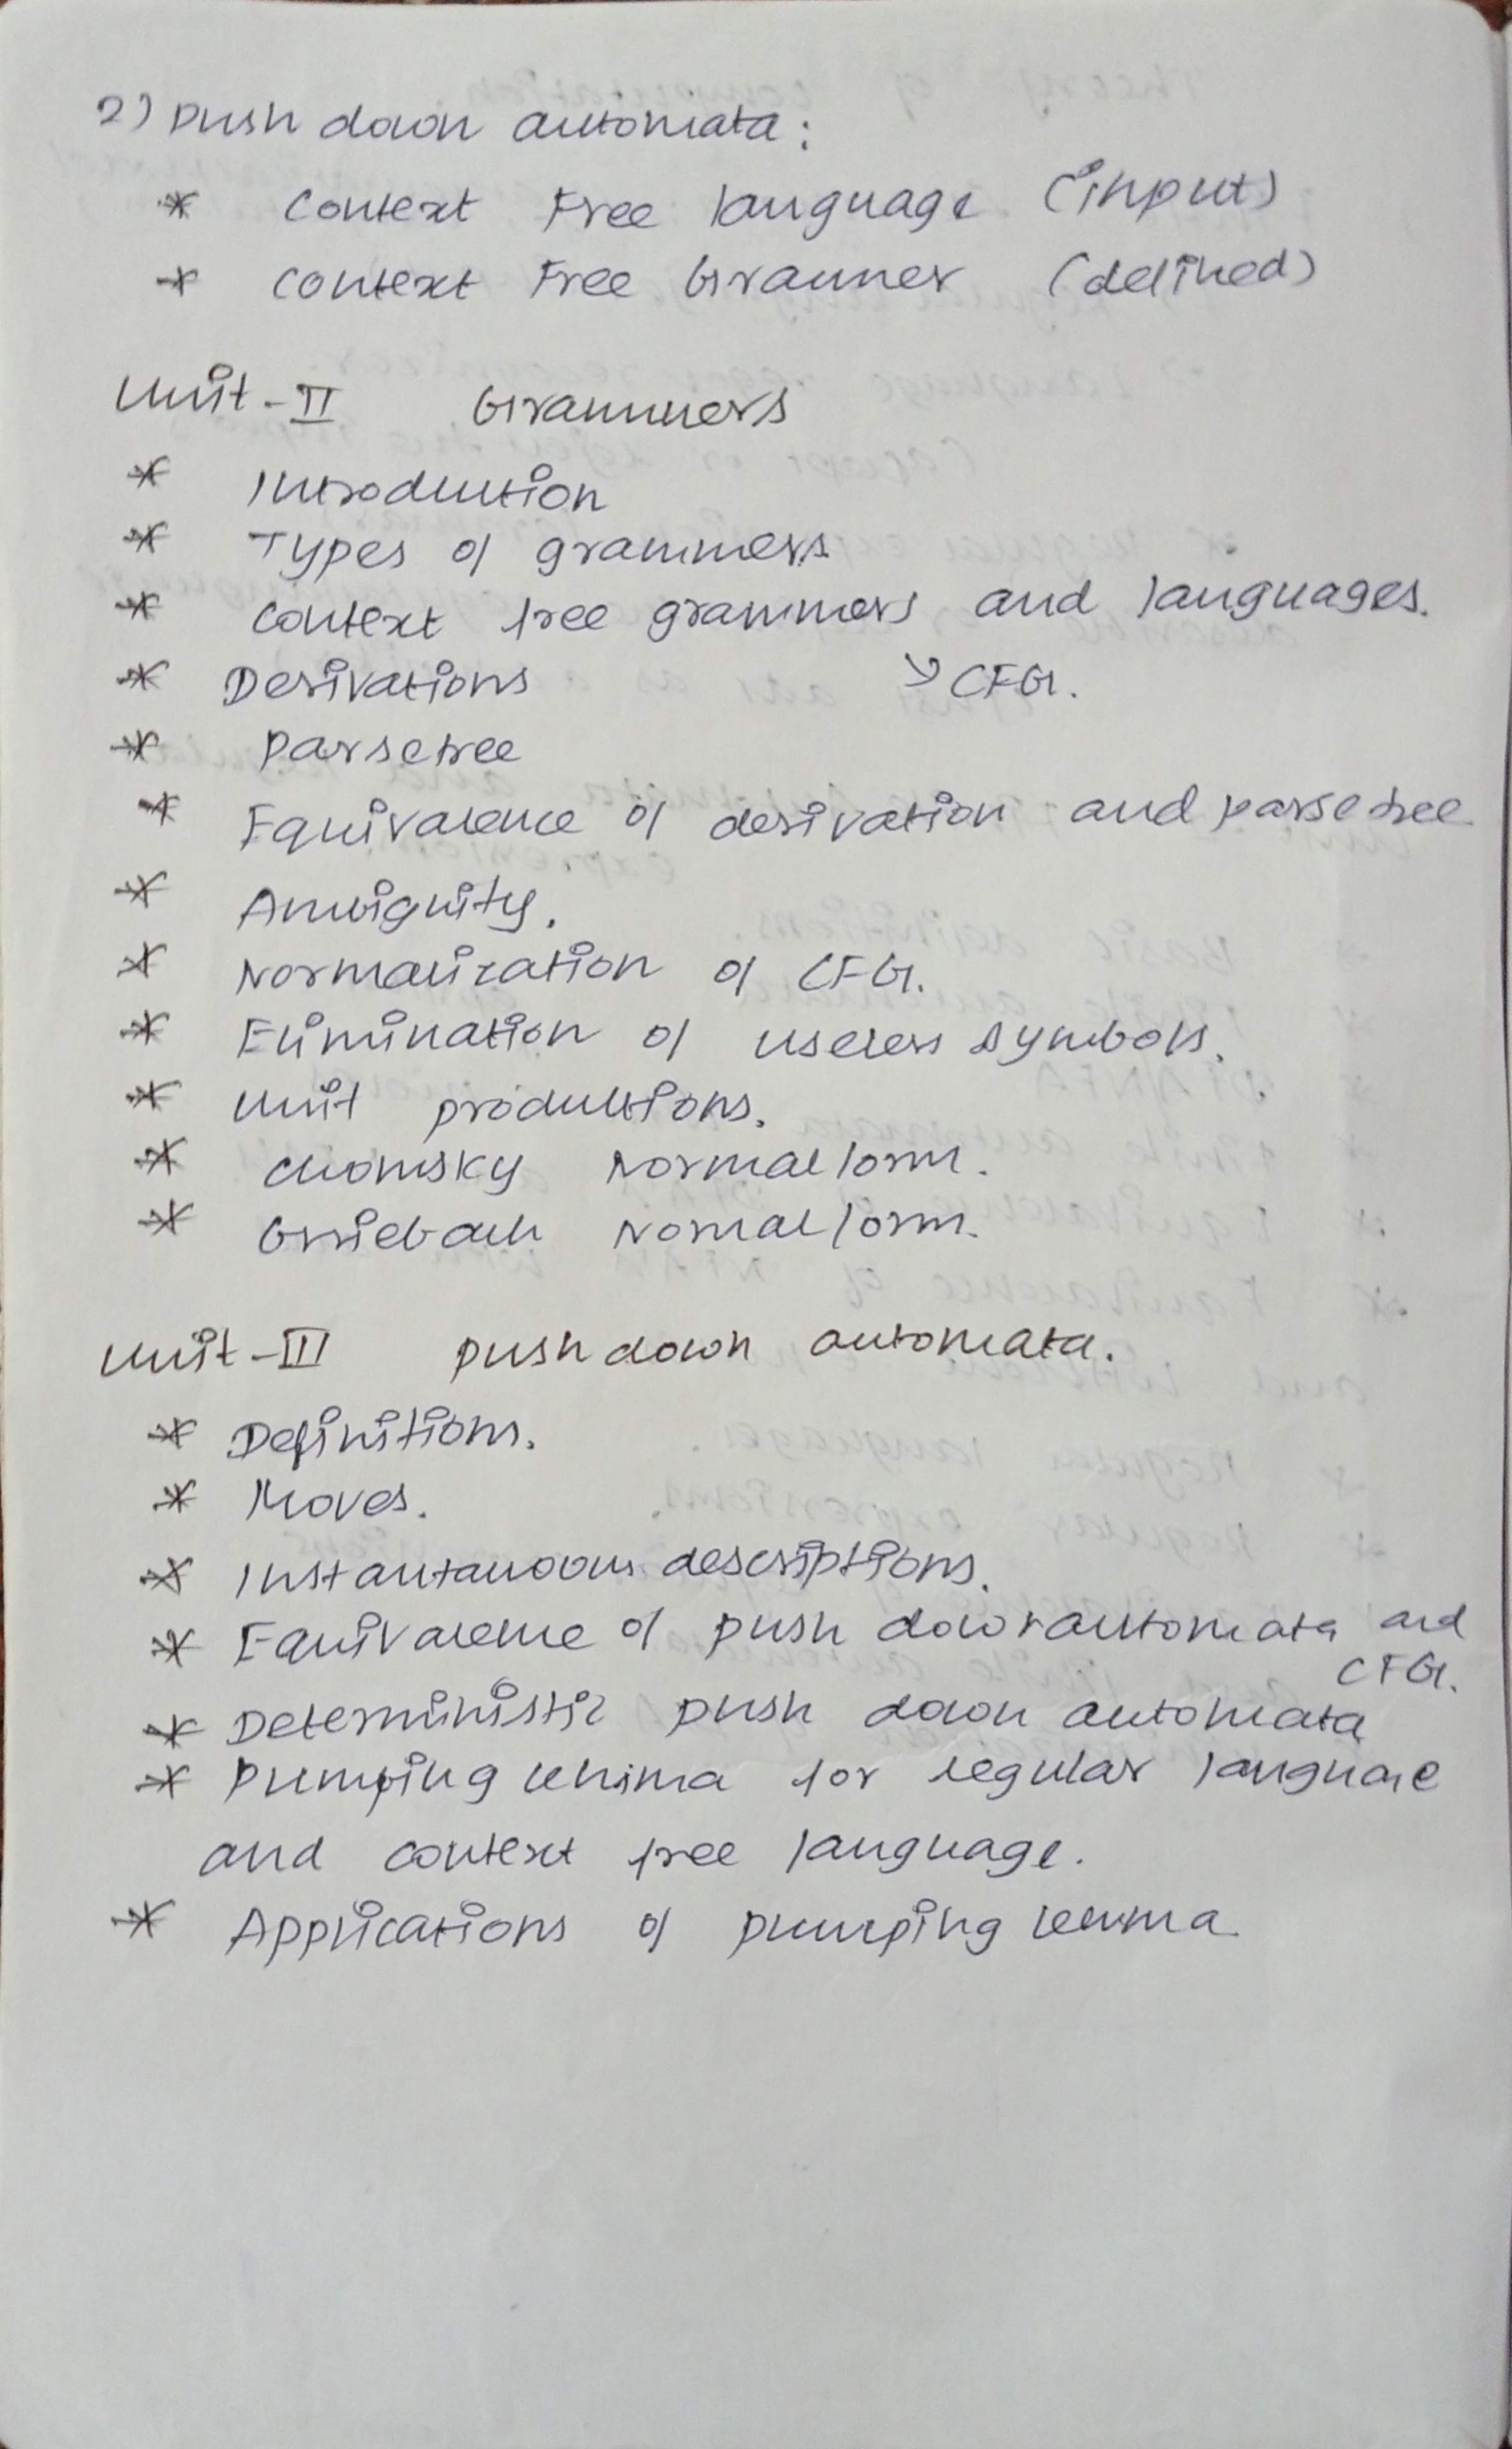 2) Push down automata:
* Context Free language (input)
* Context Free Grammer (defined)
Unit-II Grammers
* Introduction
* Types of grammers
* Context free grammers and languages.
* Derivations ↘ CFG.
* Parsetree
* Equivalence of derivation and parsetree
* Ambiguity.
* Normalization of CFG.
* Elimination of useless symbols.
* Unit productions.
* Chomsky Normal form.
* Griebach Nomal form.
Unit-III Push down automata.
* Definitions.
* Moves.
* Instantanoous descriptions.
* Equivalence of push down automata and
CFG.
* Deterministic push down automata
* Pumping lemma for regular language
and context free language.
* Applications of pumping lemma